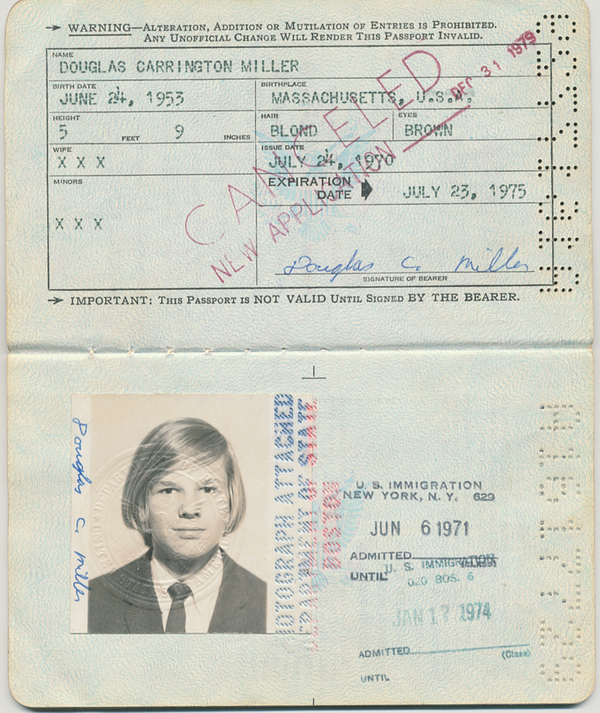 WARNING—ALTERATION, ADDITION OR MUTILATION OF ENTRIES IS PROHIBITED.
ANY UNOFFICIAL CHANGE WILL RENDER THIS PASSPORT INVALID.
NAME
DOUGLAS CARRINGTON MILLER
BIRTH DATE
JUNE 24, 1953
BIRTHPLACE
MASSACHUSETTS, U.S.A.
HEIGHT
5 FEET 9 INCHES
HAIR
BLOND
EYES
BROWN
WIFE
X X X
ISSUE DATE
JULY 24, 1970
MINORS
X X X
EXPIRATION
DATE
JULY 23, 1975
CANCELED
DEC 31 1979
NEW APPLICATION
Douglas C. Miller
SIGNATURE OF BEARER
IMPORTANT: THIS PASSPORT IS NOT VALID UNTIL SIGNED BY THE BEARER.
Douglas C. Miller
PHOTOGRAPH ATTACHED
DEPARTMENT OF STATE
BOSTON
U. S. IMMIGRATION
NEW YORK, N. Y. 629
JUN 6 1971
ADMITTED
UNTIL
U. S. IMMIGRATION
020 BOS. 6
JAN 17 1974
ADMITTED
(Class)
UNTIL